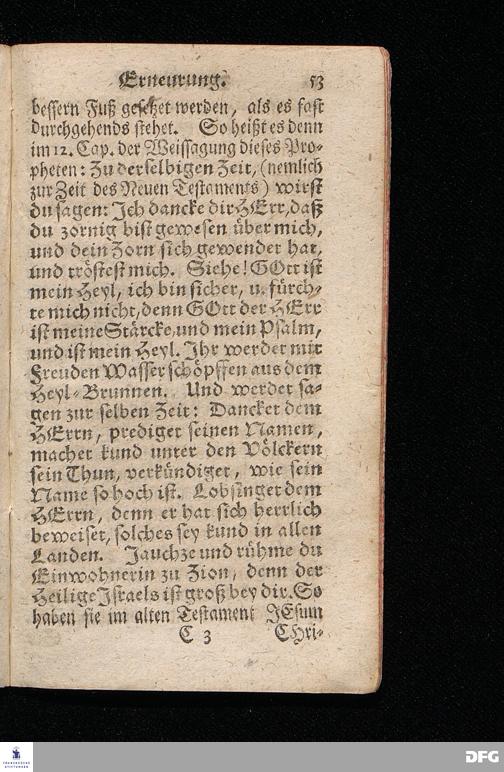 Erneurung. 53
bessern Fuß gesetzet werden, als es fast
durchgehends stehet. So heißt es denn
im 12. Cap. der Weissagung dieses Pro-
pheten: Zu derselbigen Zeit, (nemlich
zur Zeit des Neuen Testaments) wirst
du sagen: Ich dancke dir HErr, daß
du zornig bist gewesen über mich,
und dein Zorn sich gewendet hat,
und tröstest mich. Siehe! GOtt ist
mein Heyl, ich bin sicher, u. fürch-
te mich nicht, denn GOtt der HErr
ist meine Stärcke, und mein Psalm,
und ist mein Heyl. Ihr werdet mit
Freuden Wasser schöpffen aus dem
Heyl-Brunnen. Und werdet sa-
gen zur selben Zeit: Dancket dem
HErrn, prediget seinen Namen,
machet kund unter den Völckern
sein Thun, verkündiget, wie sein
Name so hoch ist. Lobsinget dem
HErrn, denn er hat sich herrlich
beweiset, solches sey kund in allen
Landen. Jauchze und rühme du
Einwohnerin zu Zion, denn der
Heilige Israels ist groß bey dir. So
haben sie im alten Testament JEsum
C 3 CHri-
FRANCKESCHE
STIFTUNGEN
DFG